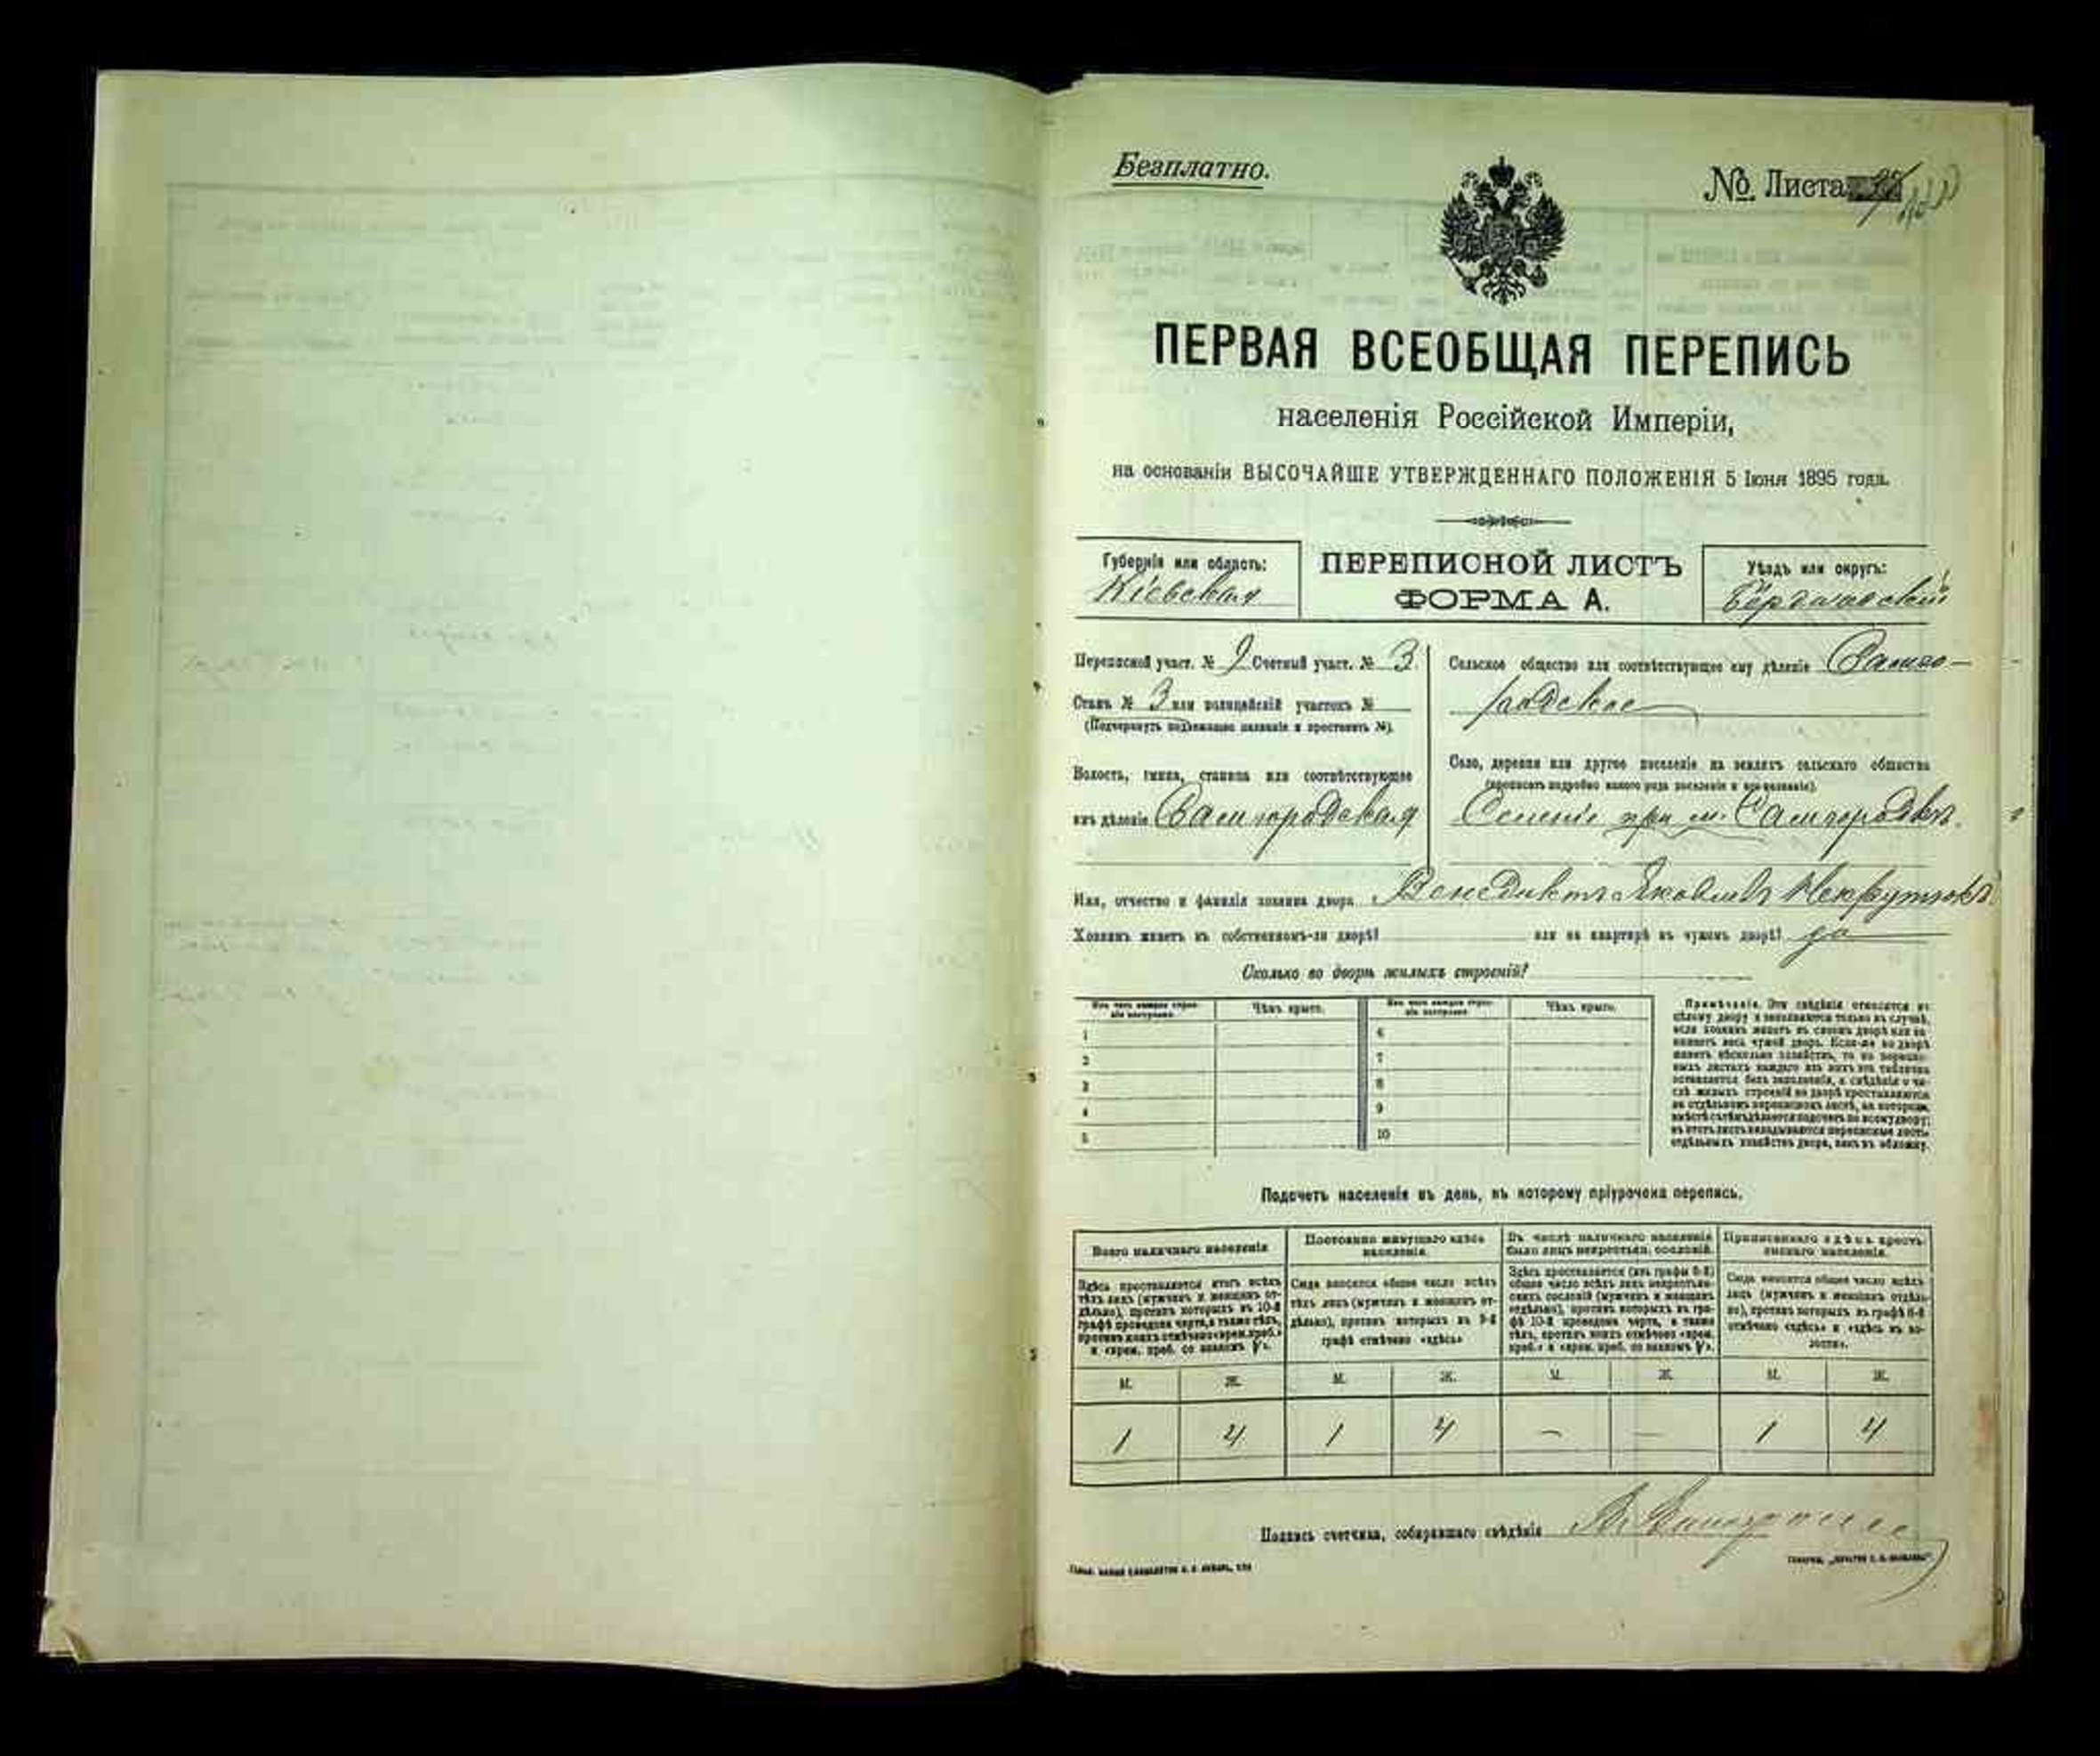 Безплатно.
№ Листа
ПЕРВАЯ ВСЕОБЩАЯ ПЕРЕПИСЬ
населенія Россійской Имперіи,
на основаніи ВЫСОЧАЙШЕ УТВЕРЖДЕННАГО ПОЛОЖЕНІЯ 5 Іюня 1895 года.
Губернія или область:
Кіевская
ПЕРЕПИСНОЙ ЛИСТЪ
ФОРМА А.
Уѣздъ или округъ:
Бердичевскій
Переписной участ. № 9 Счетный участ. № 3.
Станъ № 3 или полицейскій участокъ №
(Подчеркнуть подлежащее названіе и проставить №).
Волость, гмина, станица или соотвѣтствующее
имъ дѣленіе Самгородская
Сельское общество или соотвѣтствующее ему дѣленіе Самго-
родское
Село, деревня или другое поселеніе на земляхъ сельскаго общества
(прописать подробно какого рода поселеніе и его названіе).
при м. Самгородкѣ
Имя, отчество и фамилія хозяина двора Венедиктъ Яковлевъ
Хозяинъ живетъ въ собственномъ-ли дворѣ? или на квартирѣ въ чужомъ дворѣ? да
Сколько во дворѣ жилыхъ строеній?
Изъ чего каждое строе-
ніе построено.
Чѣмъ крыто.
Изъ чего каждое строе-
ніе построено.
Чѣмъ крыто.
1 6
2 7
3 8
4 9
5 10
Примѣчаніе. Эти свѣдѣнія относятся къ
цѣлому двору и заполняются только въ случаѣ,
если хозяинъ живетъ въ своемъ дворѣ или за-
нимаетъ весь чужой дворъ. Если-же во дворѣ
живетъ нѣсколько хозяйствъ, то на перепис-
ныхъ листахъ каждаго изъ нихъ эта табличка
оставляется безъ заполненія, а свѣдѣнія о чи-
слѣ жилыхъ строеній во дворѣ проставляются
на отдѣльномъ переписномъ листѣ, на которомъ
вмѣстѣ съ тѣмъ дѣлается подсчетъ по всему двору;
въ этотъ листъ вкладываются переписные листы
отдѣльныхъ хозяйствъ двора, какъ въ обложку.
Подсчетъ населенія въ день, къ которому пріурочена перепись.
Всего наличнаго населенія
Здѣсь проставляется итогъ всѣхъ
тѣхъ лицъ (мужчинъ и женщинъ от-
дѣльно), противъ которыхъ въ 10-й
графѣ проведена черта, а также тѣхъ,
противъ коихъ отмѣчено «врем. преб.»
и «врем. преб. со знакомъ V».
Постоянно живущаго здѣсь
населенія.
Сюда вносится общее число всѣхъ
тѣхъ лицъ (мужчинъ и женщинъ от-
дѣльно), противъ которыхъ въ 9-й
графѣ отмѣчено «здѣсь»
Въ числѣ наличнаго населенія
было лицъ некрестьян. сословій.
Здѣсь проставляется (изъ графы 6-й)
общее число всѣхъ лицъ некрестьян-
скихъ сословій (мужчинъ и женщинъ
отдѣльно), противъ которыхъ въ гра-
фѣ 10-й проведена черта, а также
тѣхъ, противъ коихъ отмѣчено «врем.
преб.» и «врем. преб. со знакомъ V».
Приписаннаго здѣсь кресть-
янскаго населенія.
Сюда вносится общее число всѣхъ
лицъ (мужчинъ и женщинъ отдѣль-
но), противъ которыхъ въ графѣ 8-й
отмѣчено «здѣсь» и «здѣсь въ во-
лости».
М. Ж. М. Ж. М. Ж. М. Ж.
1 4 1 4 — — 1 4
Подпись счетчика, собиравшаго свѣдѣнія